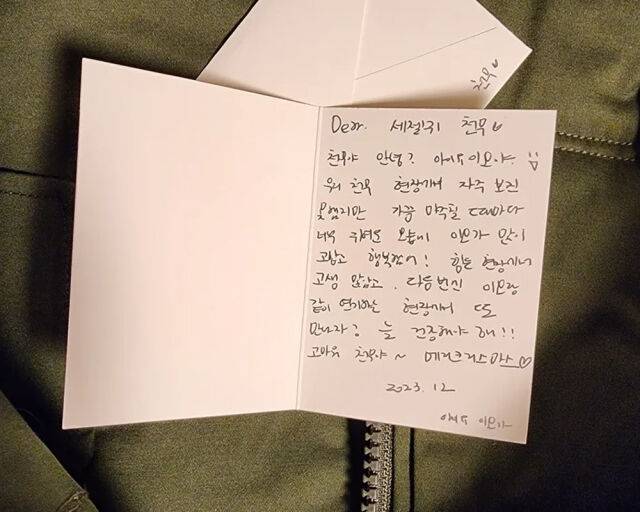 천무♥
Dear. 세젤귀 천무♥
천무야 안녕? 아이유이모야. :)
우리 천무 현장에서 자주 보진
못했지만 가끔 마주칠 때마다
너무 귀여운 모습에 이모가 많이
고맙고 행복했어! 힘든 현장에서
고생 많았고. 다음번엔 이모랑
같이 연기하는 현장에서 또
만나자? 늘 건강해야 해!!
고마워 천무야~ 메리크리스마스♡
2023. 12
아이유 이모가